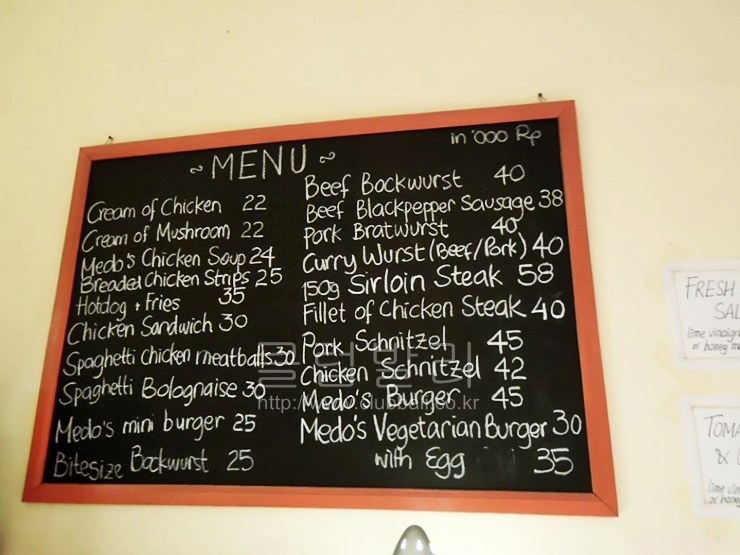 ~ MENU ~
in '000 Rp
Cream of Chicken 22
Cream of Mushroom 22
Medo's Chicken Soup 24
Breaded Chicken Strips 25
Hotdog + Fries 35
Chicken Sandwich 30
Spaghetti chicken meatballs 30
Spaghetti Bolognaise 30
Medo's mini burger 25
Bitesize Bockwurst 25
Beef Bockwurst 40
Beef Blackpepper Sausage 38
Pork Bratwurst 40
Curry Wurst (Beef/Pork) 40
150g Sirloin Steak 58
Fillet of Chicken Steak 40
Pork Schnitzel 45
Chicken Schnitzel 42
Medo's Burger 45
Medo's Vegetarian Burger 30
with Egg 35
클럽발리
FRESH
SAL
lime vinaigr
or honey mu
TOMA
&
lime vin
or honey